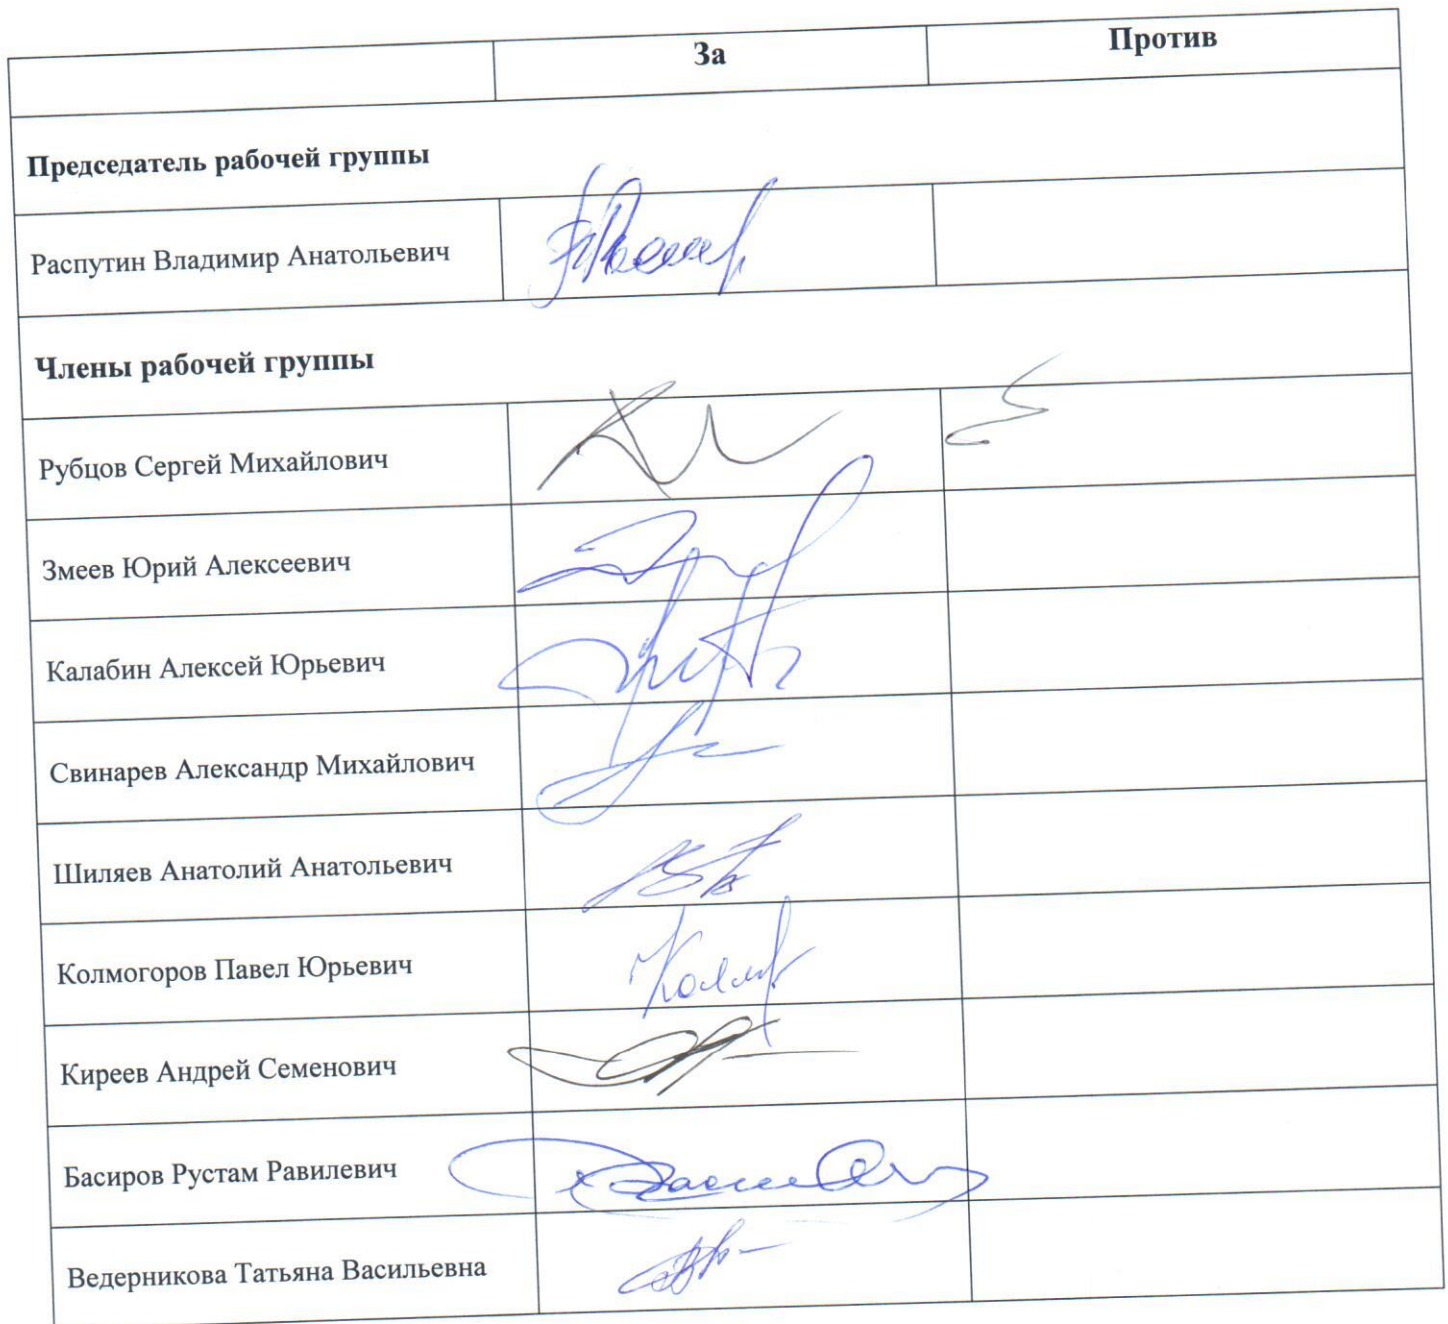 За Против
Председатель рабочей группы
Распутин Владимир Анатольевич
Члены рабочей группы
Рубцов Сергей Михайлович
Змеев Юрий Алексеевич
Калабин Алексей Юрьевич
Свинарев Александр Михайлович
Шиляев Анатолий Анатольевич
Колмогоров Павел Юрьевич
Киреев Андрей Семенович
Басиров Рустам Равилевич
Ведерникова Татьяна Васильевна